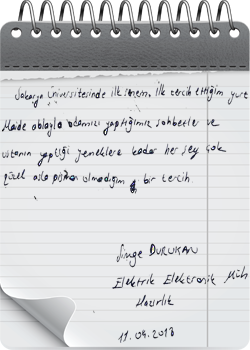 Sakarya Üniversitesinde ilk senem, ilk tercih ettiğim yurt
Hande ablayla odamızı yaptığımız sohbetler ve
ustanın yaptığı yemeklere kadar her şey çok
güzel asla pişman olmadığım bir tercih.
Simge DURUKAN
Elektrik Elektronik Müh
Hazırlık
11.04.2018